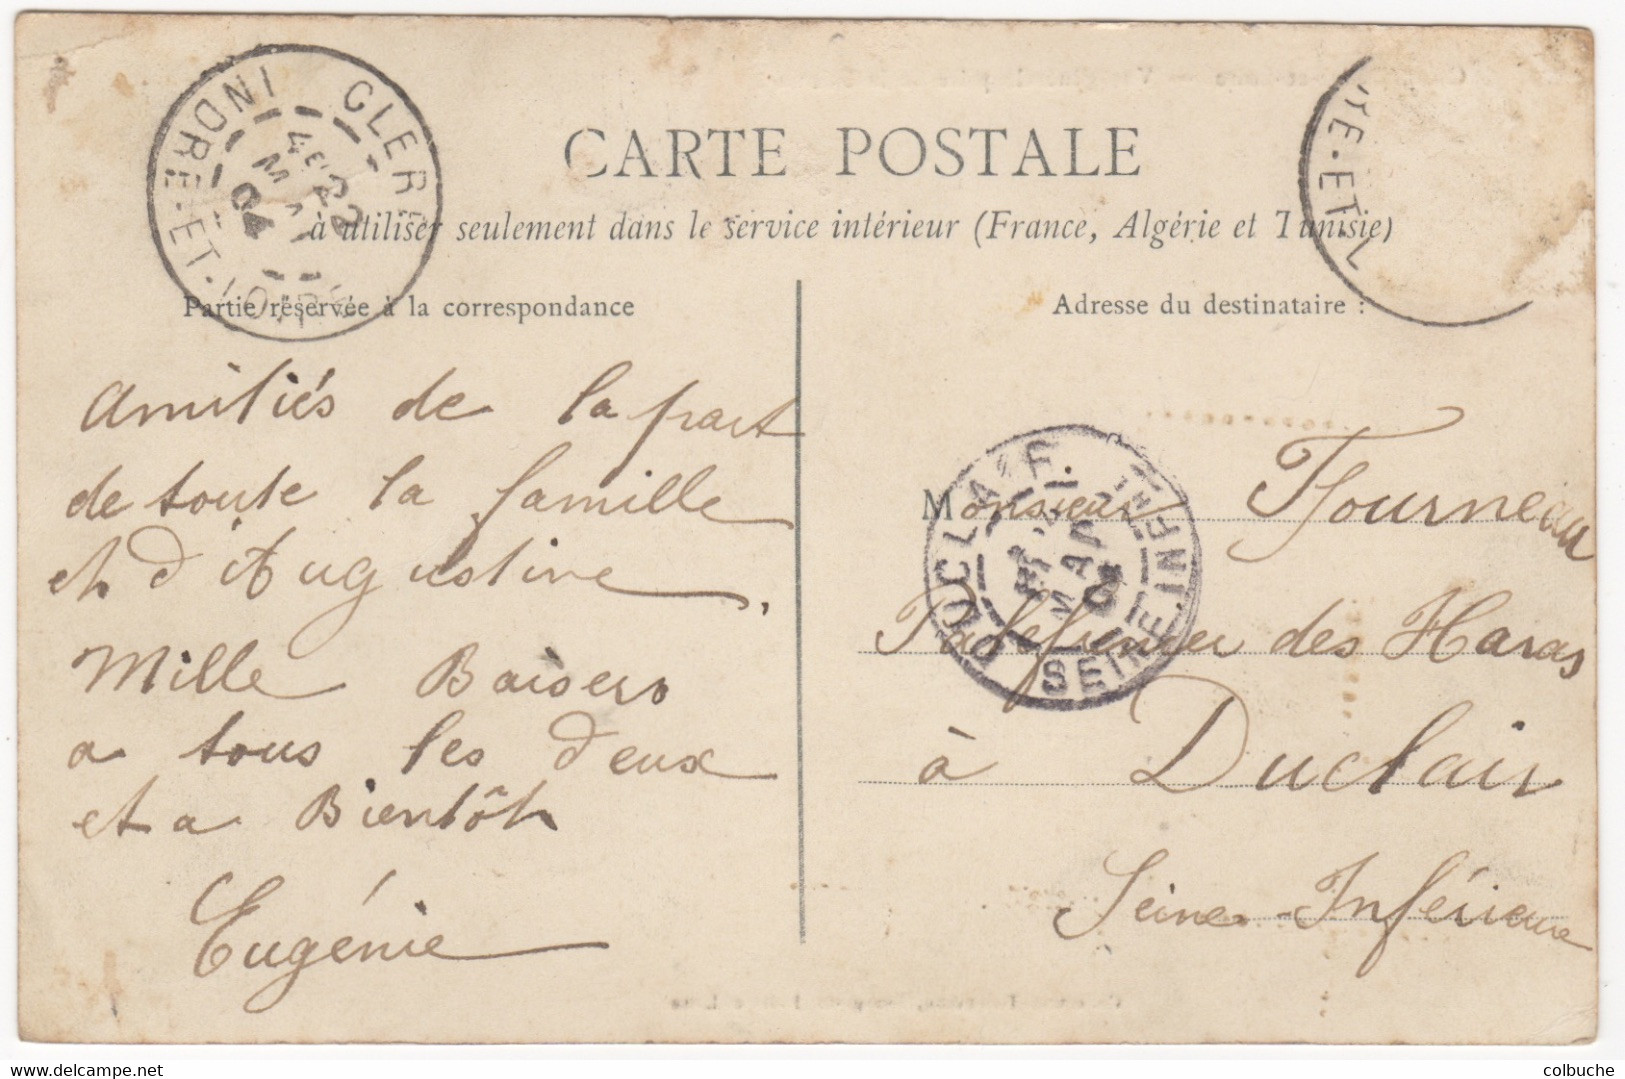 CARTE POSTALE
à utiliser seulement dans le service intérieur (France, Algérie et Tunisie)
Partie réservée à la correspondance
Adresse du destinataire :
Amitiés de la part
de toute la famille
et d'Augustine.
Mille Baisers
a tous les deux
et a Bientôt
Eugénie
Monsieur Fourneau
Palefrenier des Haras
à Duclair
Seine-Inférieure
CLERE
INDRE-ET-LOIRE
22
MAI
04
RE-ET-L
DUCLAIR
SEINE INFRE
MAI
04
www.delcampe.net
colbuche